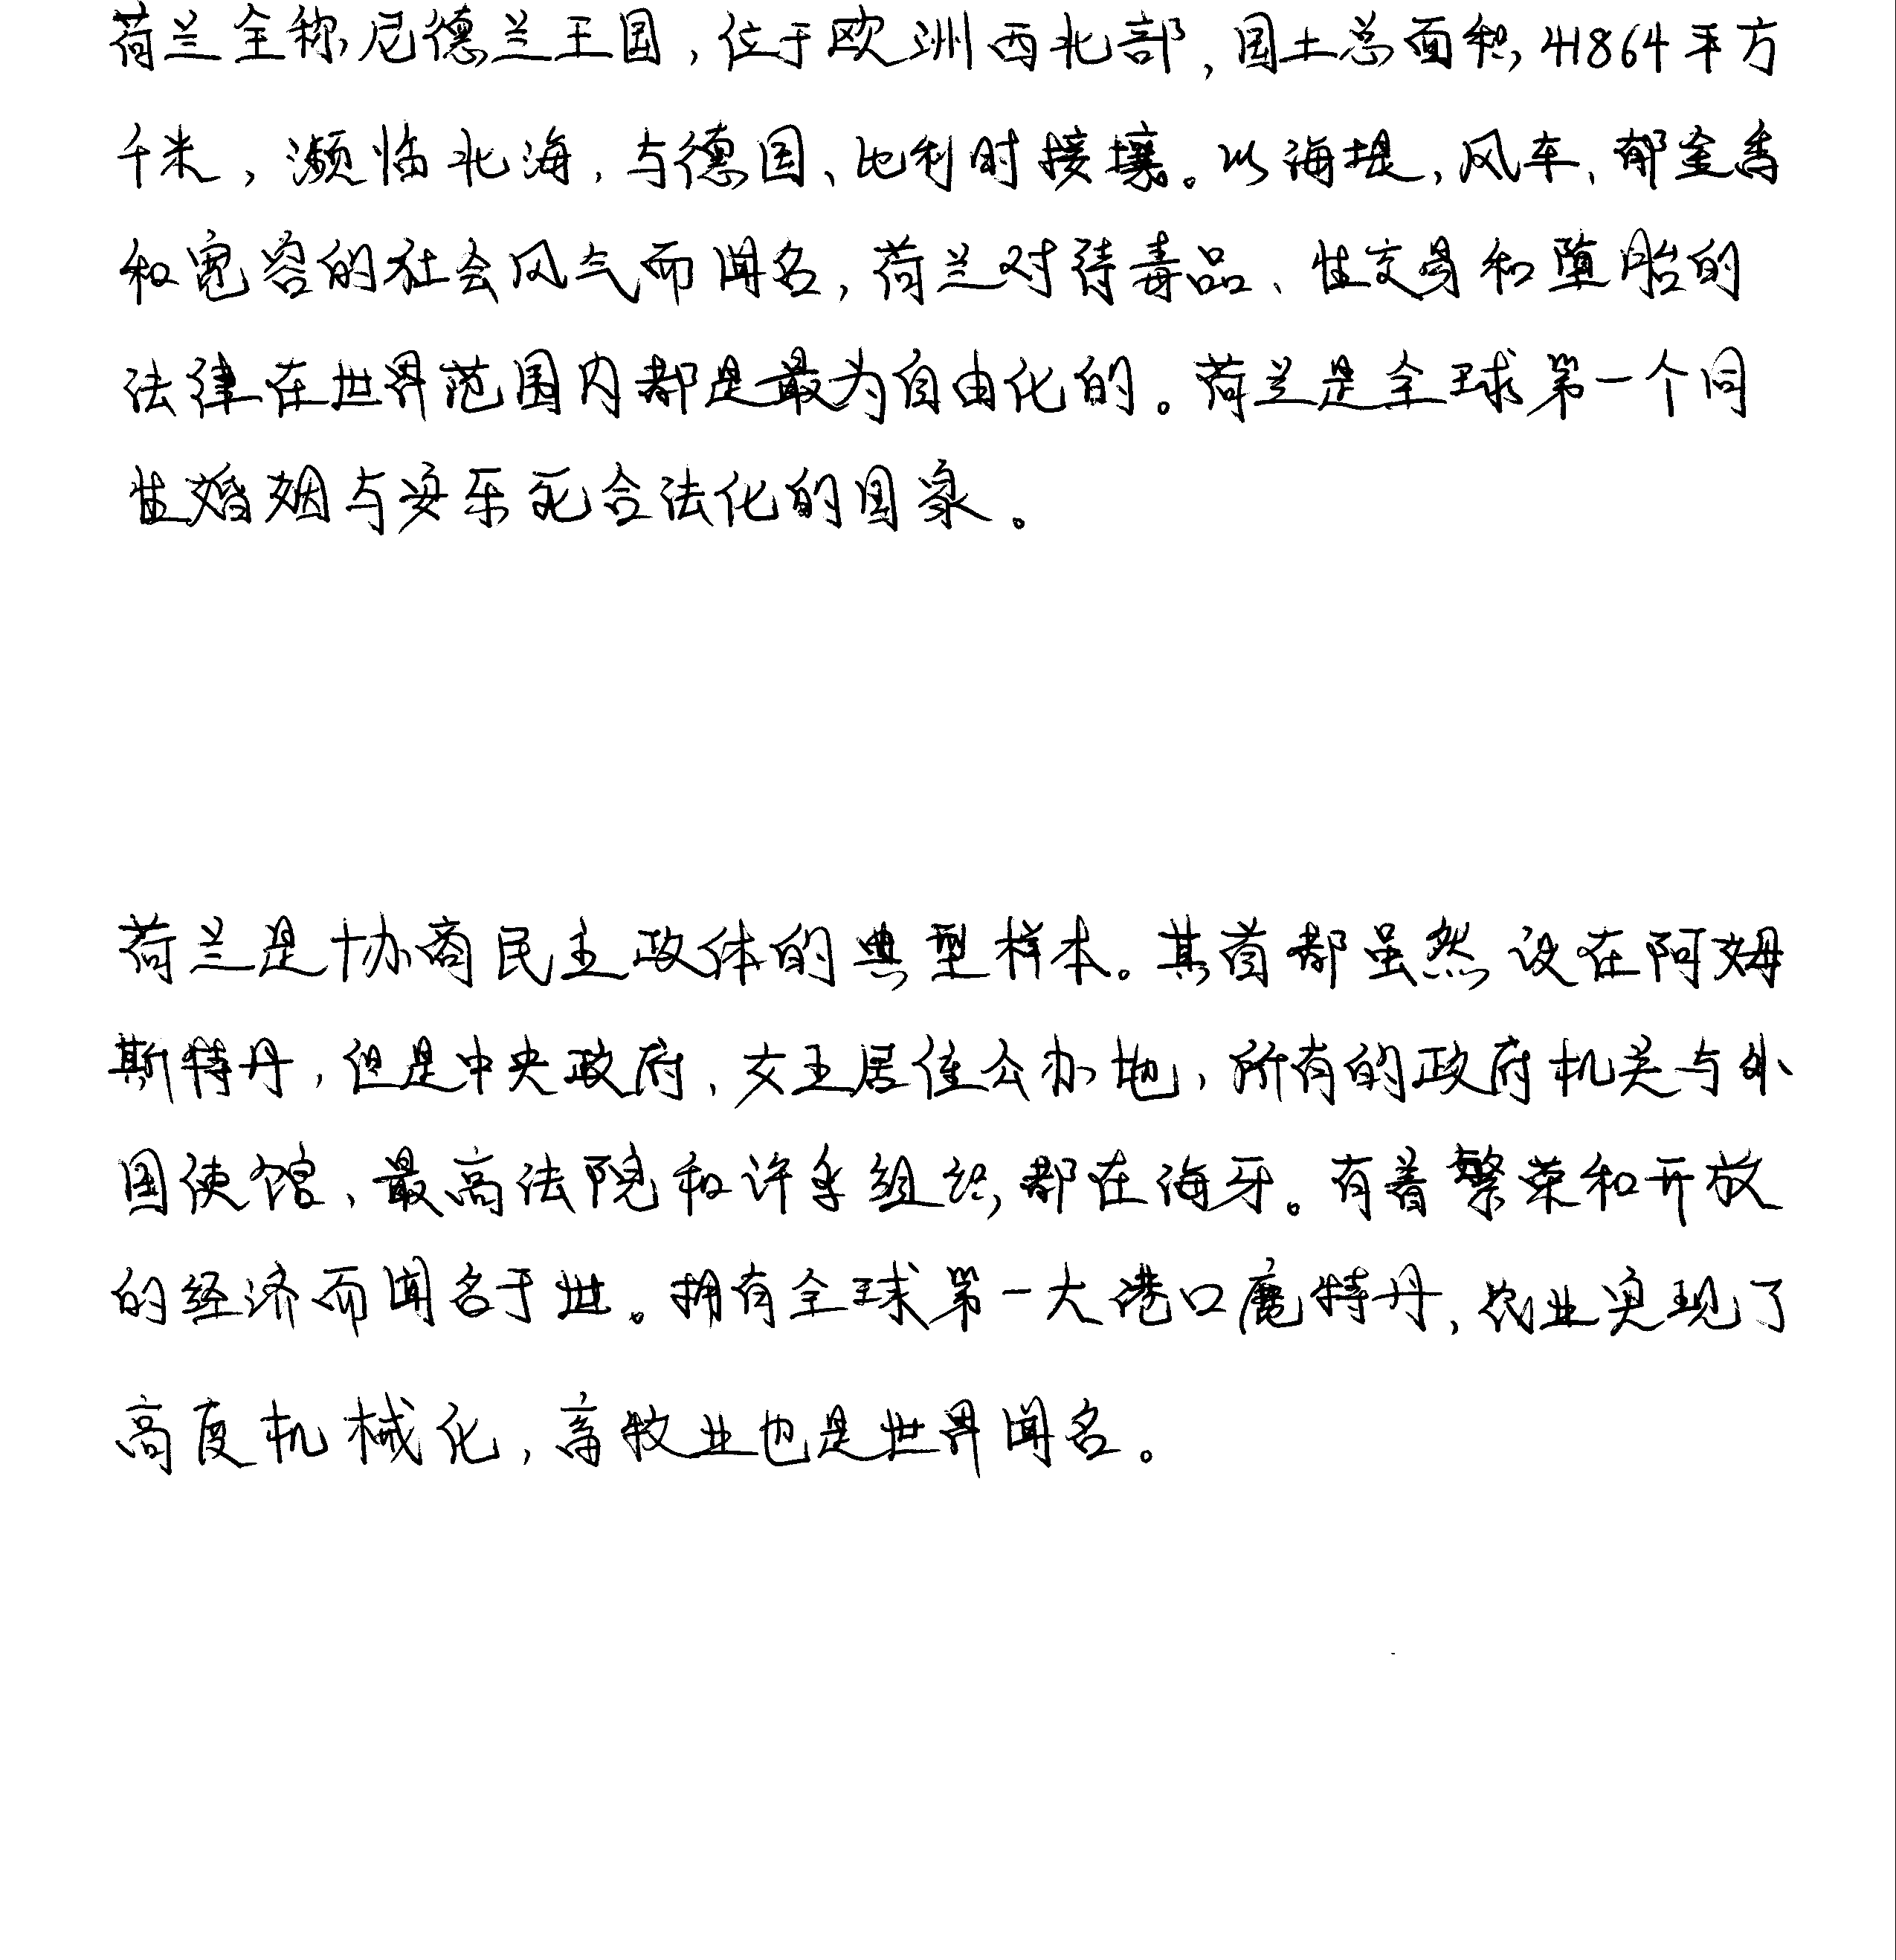 荷兰全称尼德兰王国,位于欧洲西北部,国土总面积41864平方
千米,濒临北海,与德国、比利时接壤。以海堤,风车、郁金香
和宽容的社会风气而闻名,荷兰对待毒品、性交易和堕胎的
法律在世界范围内都是最为自由化的。荷兰是全球第一个同
性婚姻与安乐死合法化的国家。
荷兰是协商民主政体的典型样本。其首都虽然设在阿姆
斯特丹,但是中央政府,女王居住公办地,所有的政府机关与外
国使馆、最高法院和许多组织都在海牙。有着繁荣和开放
的经济而闻名于世。拥有全球第一大港口鹿特丹,农业实现了
高度机械化,畜牧业也是世界闻名。